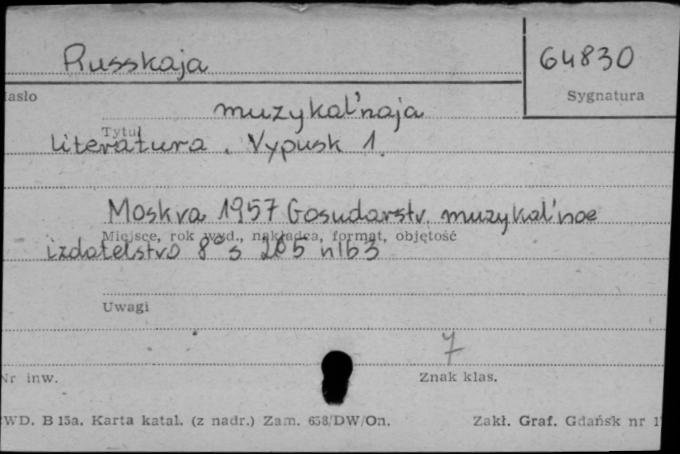 Russkaja
64830
Hasło
Sygnatura
muzykal'naja
Tytuł
literatura. Vypusk 1.
Moskva 1957 Gosudarstv. muzykal'noe
Miejsce, rok wyd., nakładca, format, objętość
izdatelstvo 8° s 205 nlb 3
Uwagi
7
Nr inw.
Znak klas.
WD. B 15a. Karta katal. (z nadr.) Zam. 658/DW/On.
Zakł. Graf. Gdańsk nr 1